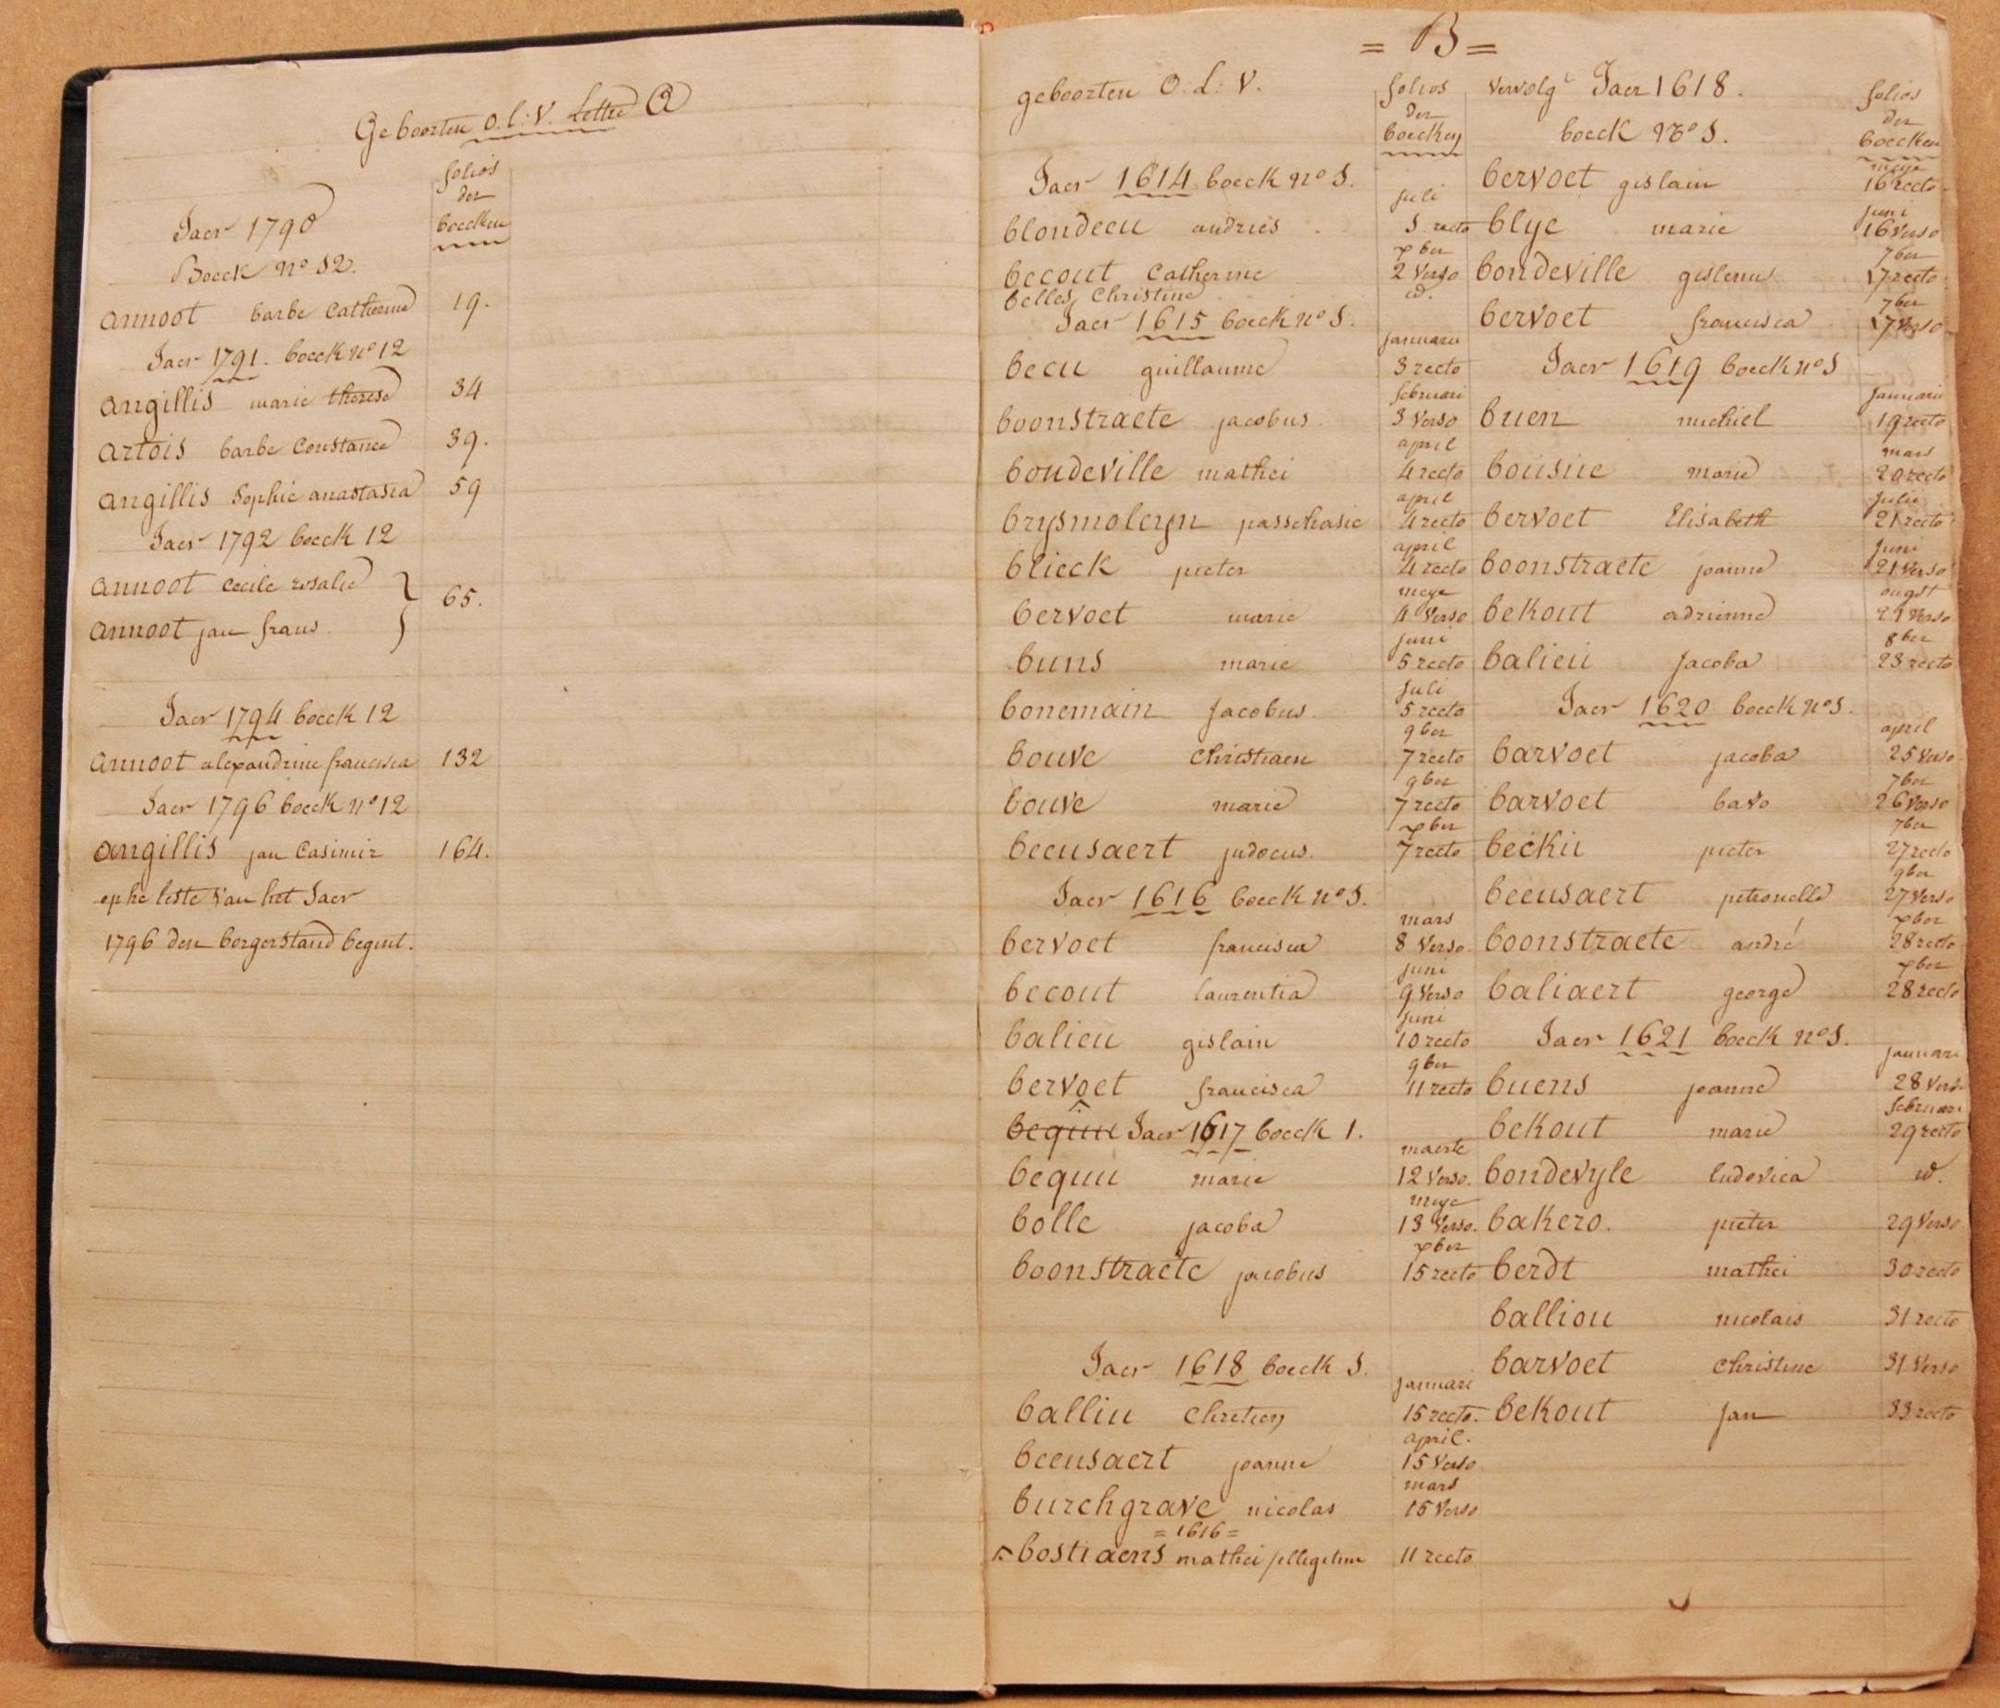 Geboorten O.L:V. Letter A
folios
der
boecken
Jaer 1790
Boeck No 12.
annoot barbe Catherine 19.
Jaer 1791. boeck No 12
angillis marie therese 34
artois barbe Constance 39.
angillis Sophie anastasia 59
Jaer 1792 boeck 12
annoot Cecile rosalie } 65.
annoot jan frans
Jaer 1794 boeck 12
annoot alexandrine francisca 132
Jaer 1796 boeck No 12
angillis jan Casimir 164.
op he leste van het Jaer
1796 den borgerstand begint.
= B =
geboorten O.L:V.
folios
der
boecken
Jaer 1614 boeck No 1.
juli
blondeeu andries 1 recto
xber
becout Catherine 2 Verso
belles Christine id.
Jaer 1615 boeck No 1.
januari
becu guillaume 3 recto
februari
boonstraete jacobus 3 Verso
april
boudeville mathei 4 recto
april
brysmoleyn passchasie 4 recto
april
blieck pieter 4 recto
meye
bervoet marie 4 Verso
juni
buns marie 5 recto
juli
bonemain Jacobus 5 recto
9ber
bouve Christiaen 7 recto
9ber
bouve marie 7 recto
xber
beeusaert judocus 7 recto
Jaer 1616 boeck No 1.
mars
bervoet francisca 8 Verso
juni
becout laurentia 9 Verso
juni
balieu gislain 10 recto
9ber
bervoet francisca 11 recto
bequu Jaer 1617 boeck 1.
maerte
bequu marie 12 Verso.
meye
bolle jacoba 13 Verso.
xber
boonstraete jacobus 15 recto
Jaer 1618 boeck 1.
januari
balliu Chretien 15 recto.
april.
beeusaert joanne 15 Verso
mars
burchgrave nicolas 15 Verso
= 1616 =
bostiaens mathei 11 recto
vervolg Jaer 1618.
boeck No 1.
folios
der
boecken
meye
bervoet gislain 16 recto
juni
blye marie 16 Verso
7ber
bondeville gislenus 17 recto
7ber
bervoet francisca 17 Verso
Jaer 1619 boeck No 1
januari
buen michiel 19 recto
mars
bousiie marie 20 recto
julie
bervoet Elisabeth 21 recto
juni
boonstraete joanne 21 Verso
ougst
bekout adrienne 21 Verso
8ber
balieu Jacoba 23 recto
Jaer 1620 boeck No 1.
april
barvoet jacoba 25 Verso
7ber
barvoet bavo 26 Verso
7ber
beckii pieter 27 recto
9ber
beeusaert petronelle 27 Verso
xber
boonstraete andré 28 recto
xber
baliaert george 28 recto
Jaer 1621 boeck No 1.
januari
buens joanne 28 Verso
februari
bekout marie 29 recto
bondevyle ludovica id.
bakero. pieter 29 Verso
berdt mathei 30 recto
balliou nicolais 31 recto
barvoet Christine 31 Verso
bekout Jan 33 recto